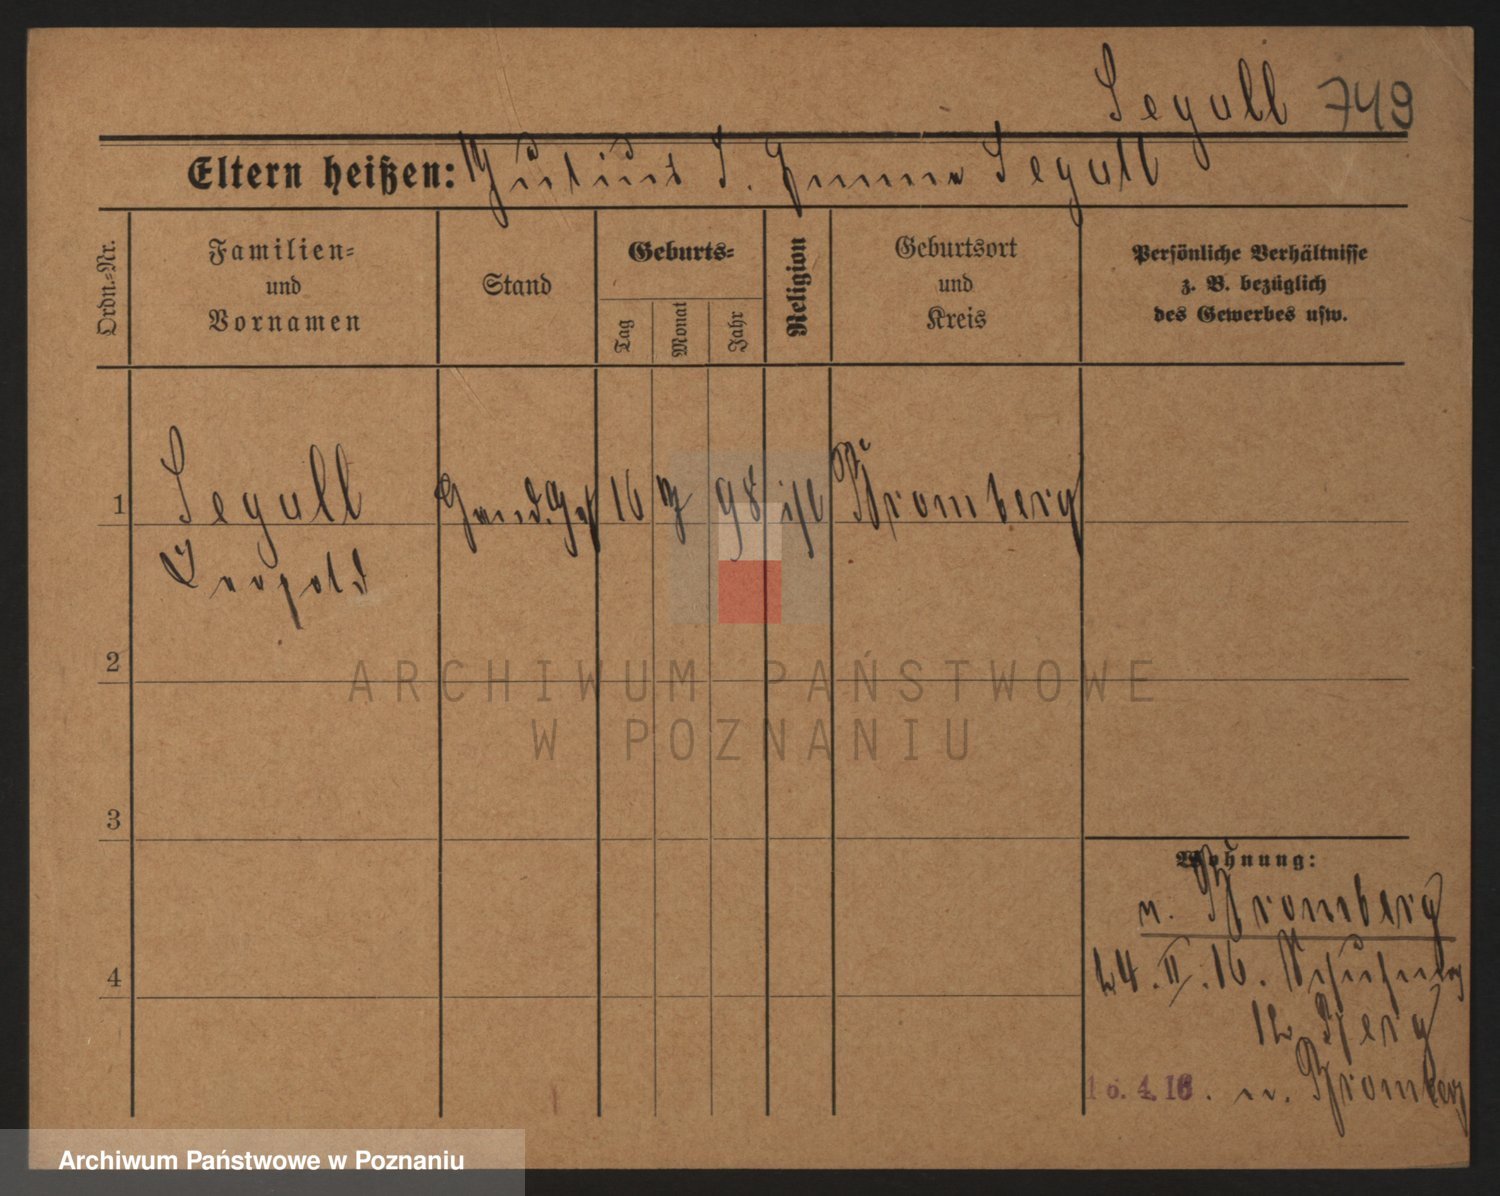 Segall 749
Eltern heißen: Julius S. Emma Segall
Ordn.-Nr.
Familien-
und
Vornamen
Stand
Geburts-
Tag
Monat
Jahr
Religion
Geburtsort
und
Kreis
Persönliche Verhältnisse
z. B. bezüglich
des Gewerbes usw.
1 Segall 16 98 isr Bromberg
Leopold
2
3
4
Wohnung:
n. Bromberg
24. II. 16.
12 Berg
16. 4. 16. n. Bromberg
ARCHIWUM PAŃSTWOWE
W POZNANIU
Archiwum Państwowe w Poznaniu